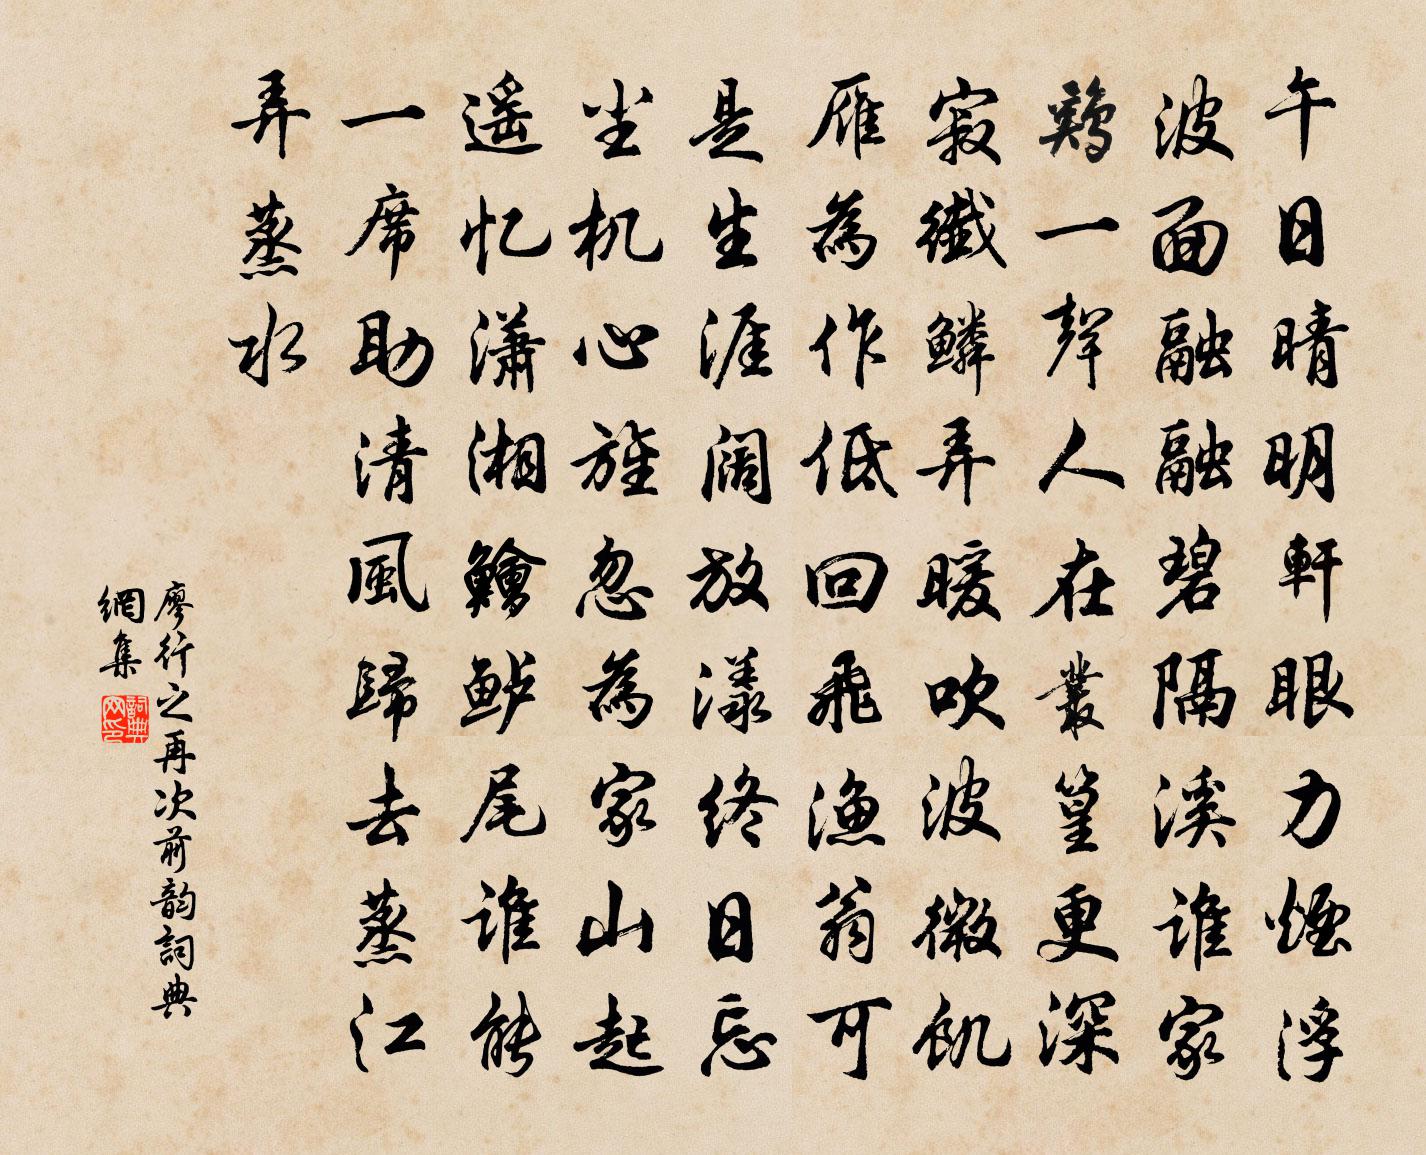 午日晴明軒眼力煙浮
波面融融碧隔溪谁家
鷄一聲人在叢篁更深
寂纖鱗弄暖吹波微飢
雁為作低回飛漁翁可
是生涯阔放漾终日忘
坐机心旌忽為家山起
遥忆潇湘鱠鲈尾谁能
一席助清風歸去蒸江
弄蒸水
廖行之再次前韵詞典
網集
詞典網印